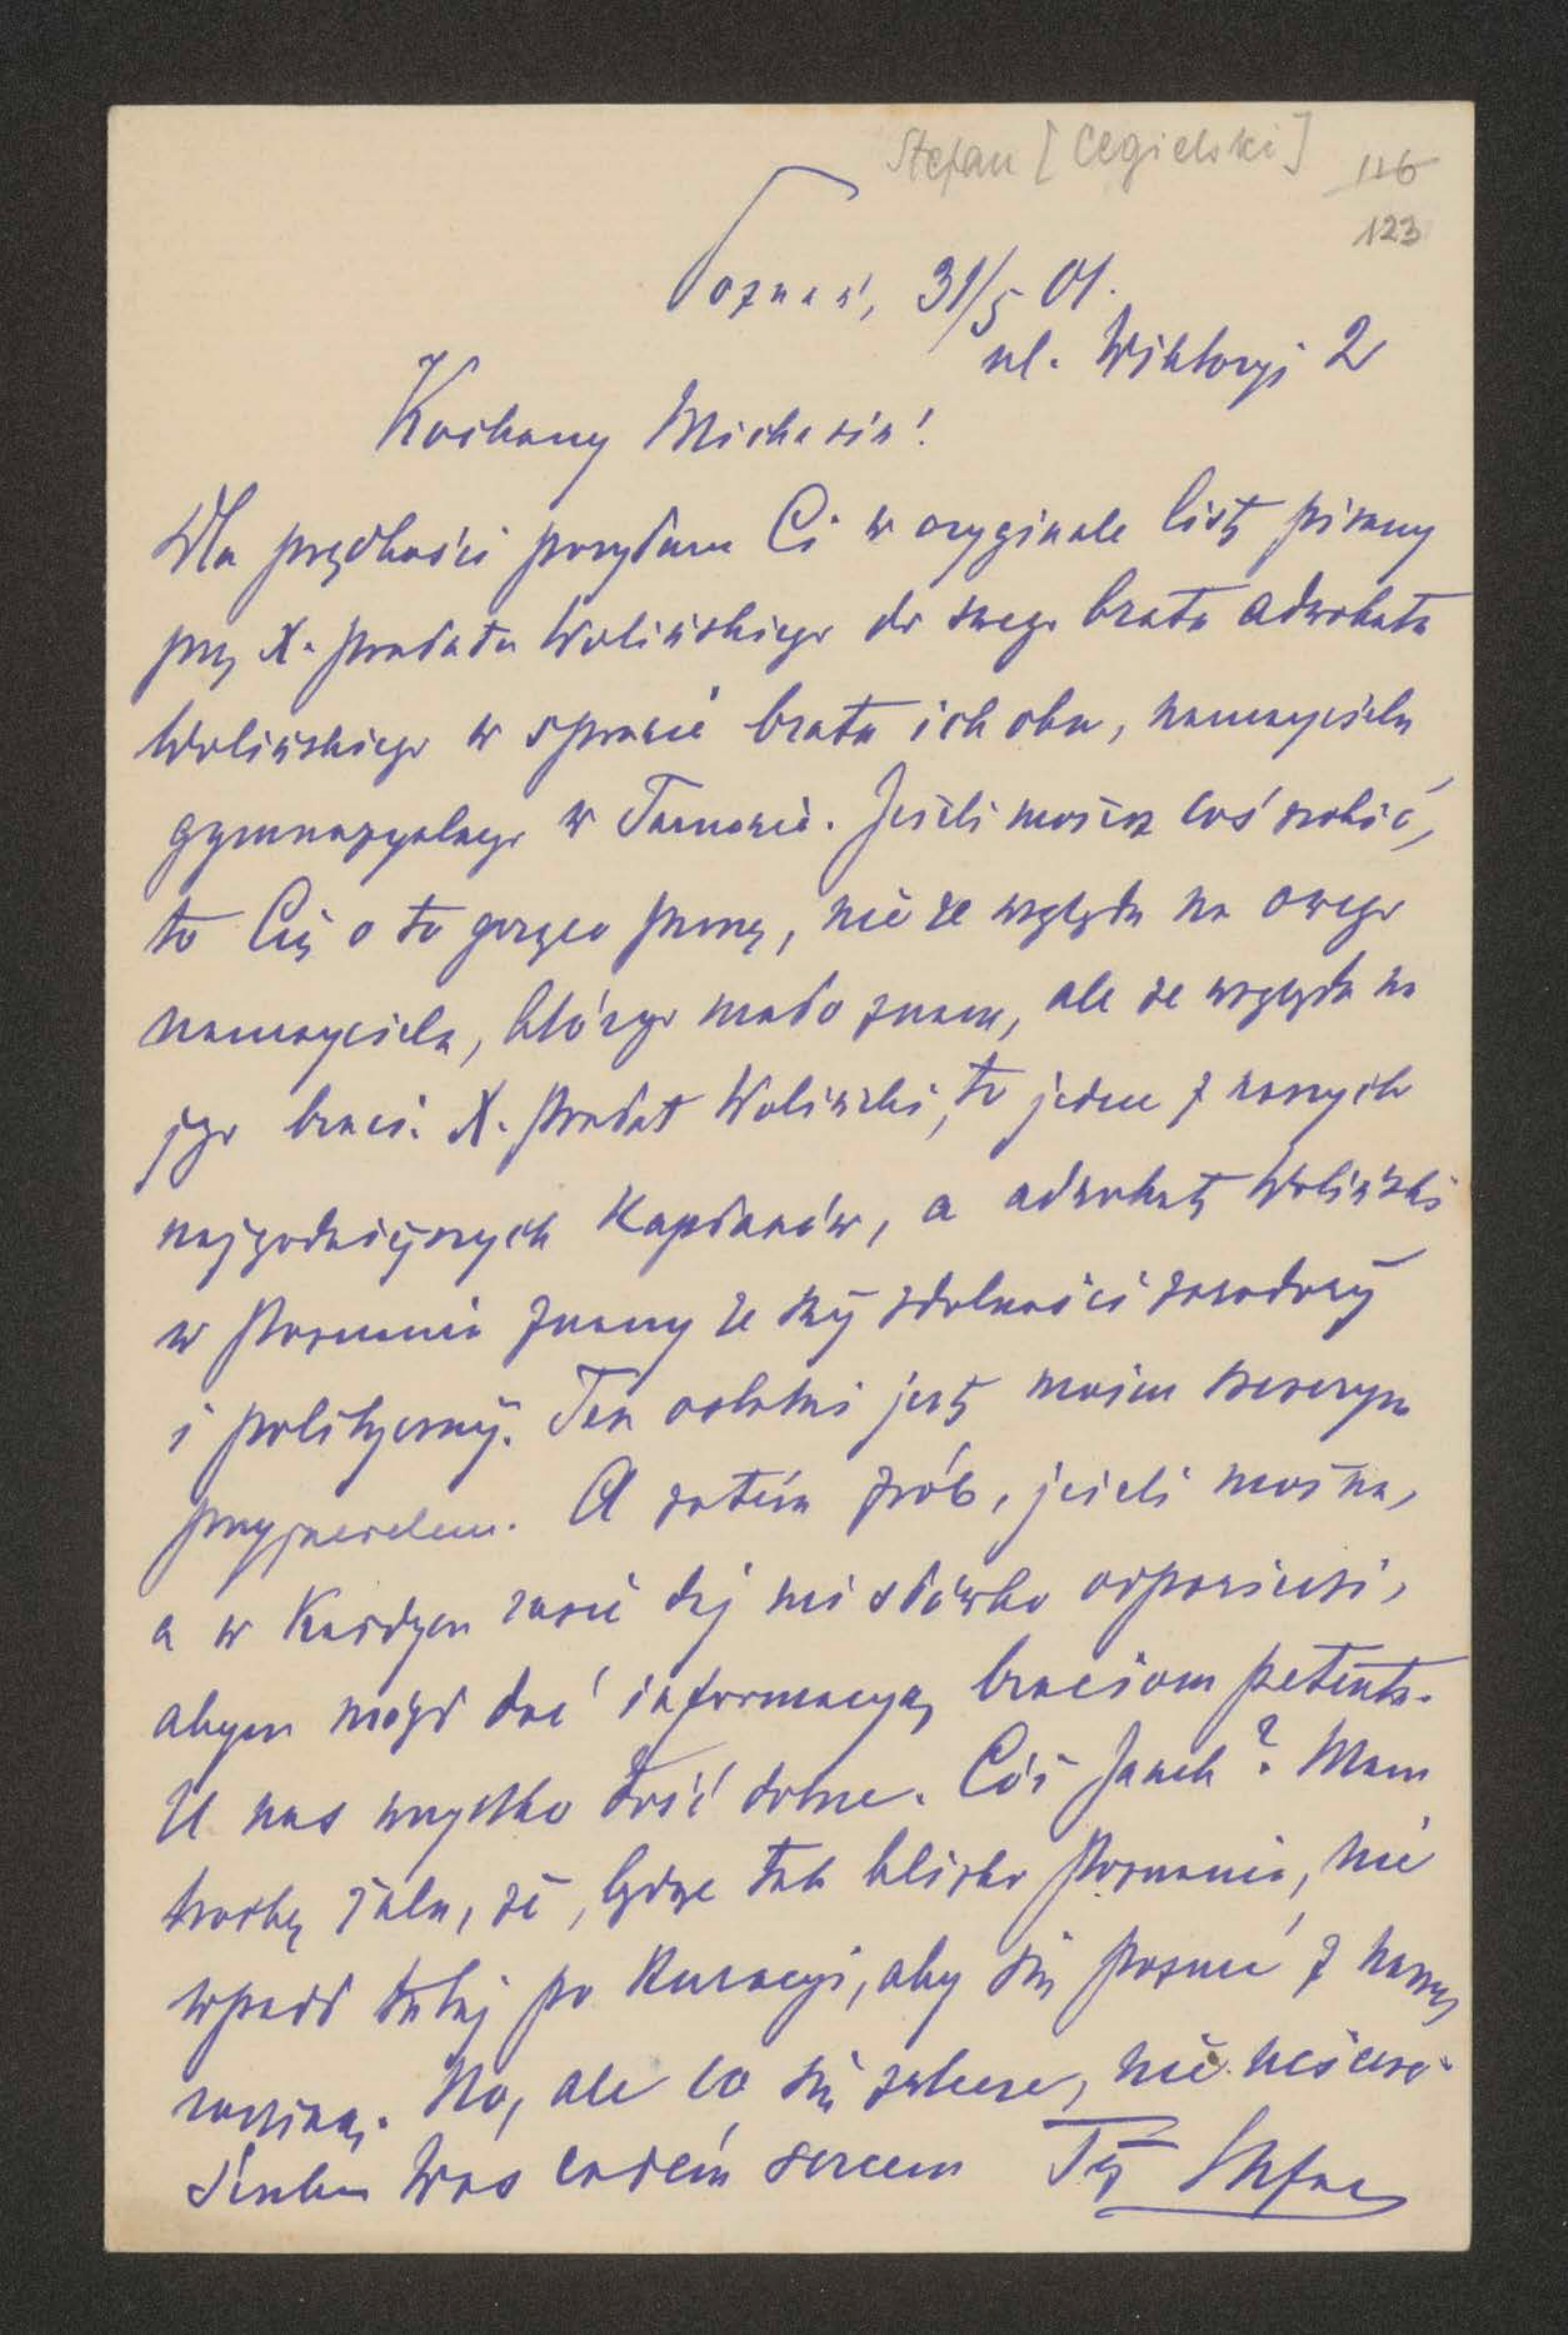 Stefan [Cegielski]
116
123
Poznań, 31/5 01.
ul. Wiktoryi 2
Kochany Michasiu!
Dla prędkości posyłam Ci w oryginale list pisany
przez X. prałata Wolińskiego do swego brata adwokata
Wolińskiego w sprawie brata ich obu, nauczyciela
gymnazyalnego w Tarnowie. Jeżeli możesz coś zrobić,
to Cię o to gorąco proszę, nie ze względu na owego
nauczyciela, którego mało znam, ale ze względu na
jego braci. X. prałat Woliński, to jeden z naszych
najgodniejszych kapłanów, a adwokat Woliński
w Poznaniu znany ze swej zdolności zawodowej
i politycznej. Ten ostatni jest moim szczerym
przyjacielem. A zatém zrób, jeżeli można,
a w każdym razie daj mi słówko odpowiedzi,
abym mógł dać informacyą braciom petenta.
U nas wszystko dość dobrze. Cóż Janek? Mam
troszkę żalu, że, będąc tak blisko Poznania, nie
wpadł tutaj po kuracyi, aby się poznać z naszą
rodziną. No, ale co się zwlecze, nie uciecze.
Ściskam Was całém sercem Twój Stefan